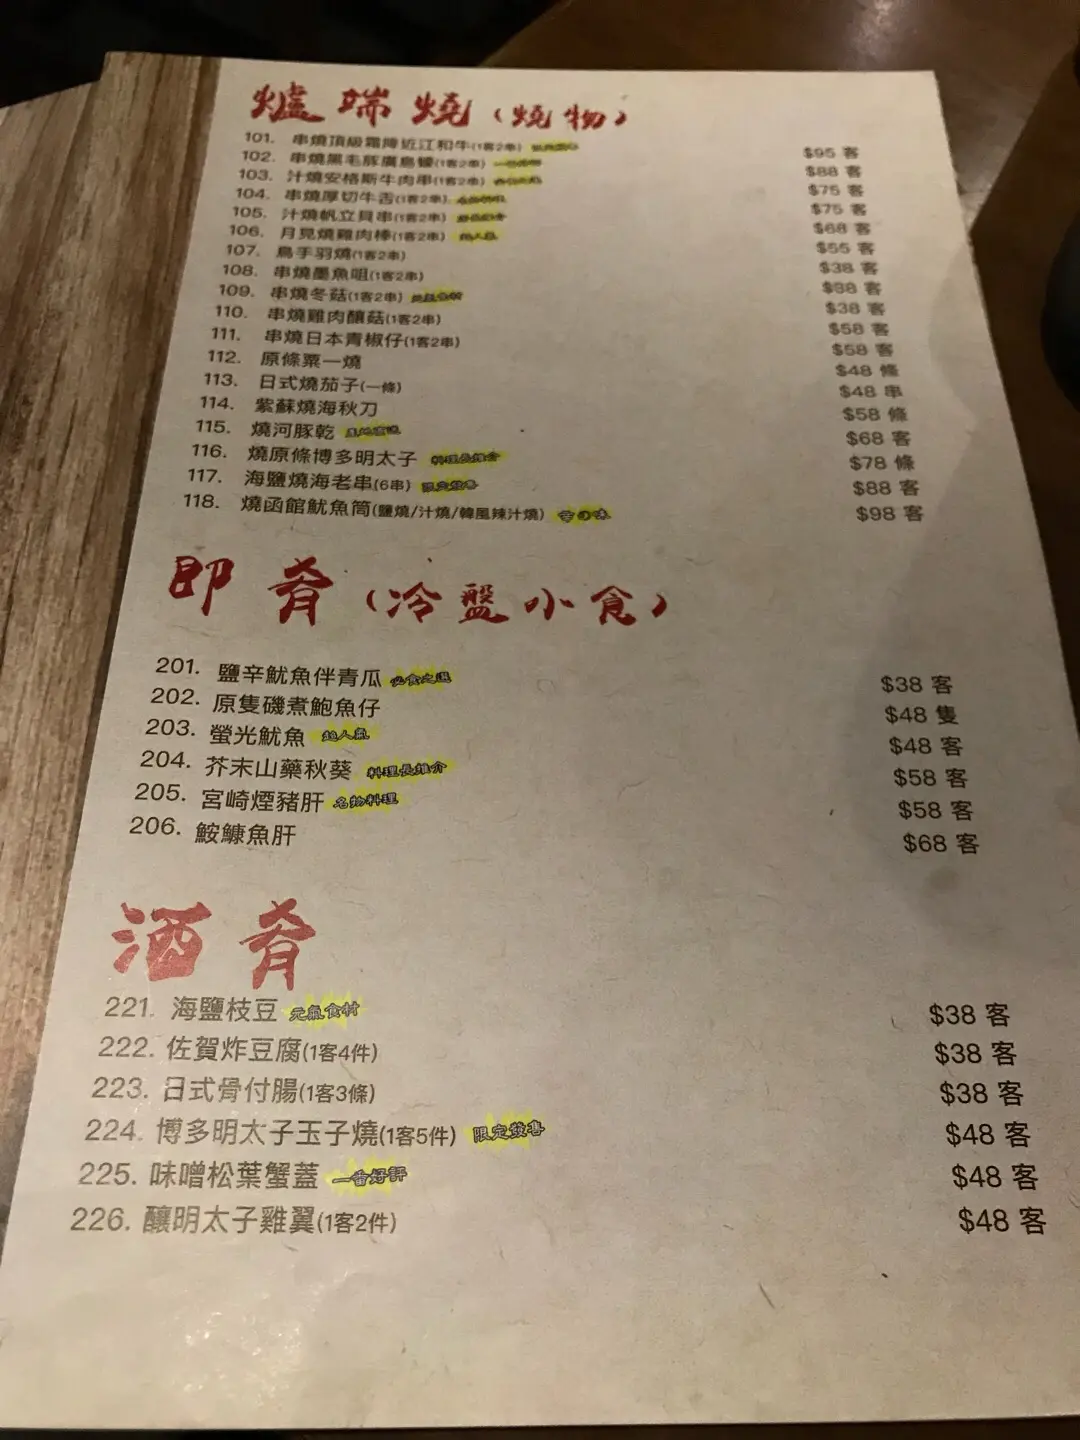 爐端燒(燒物)
101. 串燒頂級霜降近江和牛(1客2串) $95 客
102. 串燒黑毛豚廣島蠔(1客2串) $88 客
103. 汁燒安格斯牛肉串(1客2串) $75 客
104. 串燒厚切牛舌(1客2串) $75 客
105. 汁燒帆立貝串(1客2串) $68 客
106. 月見燒雞肉棒(1客2串) 超人氣 $55 客
107. 鳥手羽燒(1客2串) $38 客
108. 串燒墨魚咀(1客2串) $38 客
109. 串燒冬菇(1客2串) $38 客
110. 串燒雞肉釀菇(1客2串) $58 客
111. 串燒日本青椒仔(1客2串) $58 客
112. 原條粟一燒 $48 條
113. 日式燒茄子(一條) $48 串
114. 紫蘇燒海秋刀 $58 條
115. 燒河豚乾 產地直送 $68 客
116. 燒原條博多明太子 料理長推介 $78 條
117. 海鹽燒海老串(6串) 限定發售 $88 客
118. 燒函館魷魚筒(鹽燒/汁燒/韓風辣汁燒) 辛の味 $98 客
即肴(冷盤小食)
201. 鹽辛魷魚伴青瓜 必食之選 $38 客
202. 原隻磯煮鮑魚仔 $48 隻
203. 螢光魷魚 超人氣 $48 客
204. 芥末山藥秋葵 料理長推介 $58 客
205. 宮崎煙豬肝 名物料理 $58 客
206. 鮟鱇魚肝 $68 客
酒肴
221. 海鹽枝豆 元氣食材 $38 客
222. 佐賀炸豆腐(1客4件) $38 客
223. 日式骨付腸(1客3條) $38 客
224. 博多明太子玉子燒(1客5件) 限定發售 $48 客
225. 味噌松葉蟹蓋 一番好評 $48 客
226. 釀明太子雞翼(1客2件) $48 客